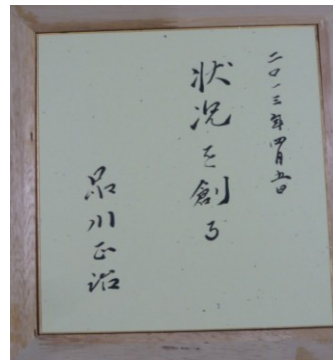 二〇一三年四月五日
状況を創る
品川正治